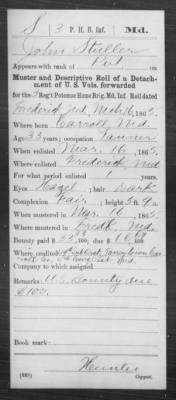 S | 3 P. H. B. Inf. | Md.
John Stuller
Appears with rank of Pvt on
Muster and Descriptive Roll of a Detach-
ment of U. S. Vols. forwarded
for the 3 Reg't Potomac Home Brig. Md. Inf. Roll dated
Frederick, Md, Mch 16, 1865.
Where born Carroll, Md.
Age 33 years; occupation Farmer
When enlisted Mar. 16, 1865.
Where enlisted Frederick Md
For what period enlisted 1 years.
Eyes Hazel; hair Dark
Complexion Fair; height 5 ft. 9 in.
When mustered in Mar. 16, 1865.
Where mustered in Fredk. Md.
Bounty paid $ 33 100; due $ 66 67 100
Where credited Taneytown
Company to which assigned
Remarks: U.S. Bounty due
$100.
Book mark:
(339) Copyist.